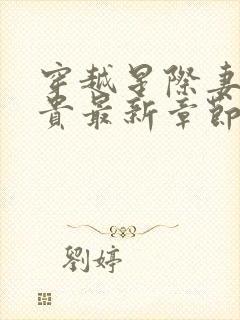 穿越星際妻
貴最新章節
劉婷